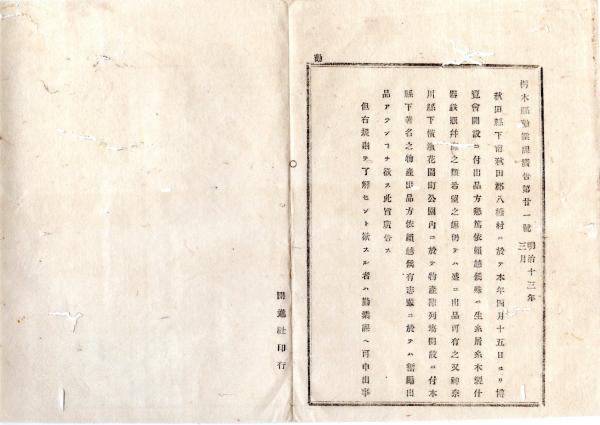 栃木縣勸業課廣告第廿一號 明治十三年三月
秋田縣下南秋田郡八橋村ニ於テ本年四月十五日ヨリ博
覽會開設ニ付出品方懇篤依賴越候條生糸屑糸木製什
器鉄類并之類希望之趣仍テハ盛ニ出品可有之又神奈
川縣下横濱花園町公園内ニ於テ物產陳列塲開設ニ付本
縣下著名之物產出品方依賴越候有志輩ニ於テハ奮勵出
品アランコヲ欲ス此旨廣告ス
但右規則ヲ了解セント欲スル者ハ勸業課ヘ可申出事
勸
開進社印行